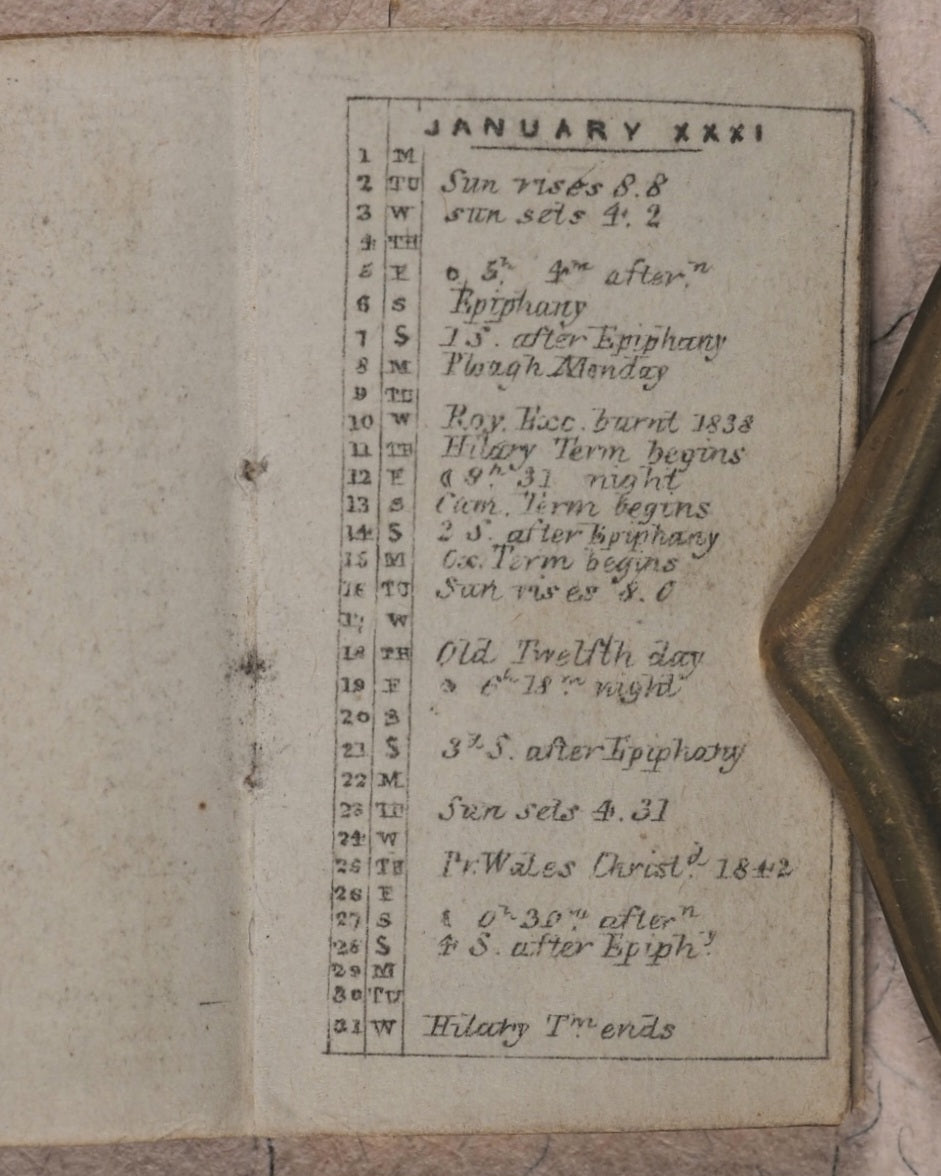 JANUARY XXXI
1 M
2 TU Sun rises 8.8
3 W sun sets 4.2
4 TH
5 F 5h. 4m after.n
6 S Epiphany
7 S 1 S. after Epiphany
8 M Plough Monday
9 TU
10 W Roy. Exc. burnt 1838
11 TH Hilary Term begins
12 F ☾ 9h. 31 night
13 S Cam. Term begins
14 S 2 S. after Epiphany
15 M Ox. Term begins
16 TU Sun rises 8.0
17 W
18 TH Old Twelfth day
19 F 6h 18m. night
20 S
21 S 3d S. after Epiphany
22 M
23 TU Sun sets 4.31
24 W
25 TH Pr. Wales Christd. 1842
26 F
27 S 0h 30m. aftern
28 S 4 S. after Epiphy.
29 M
30 TU
31 W Hilary Tm. ends